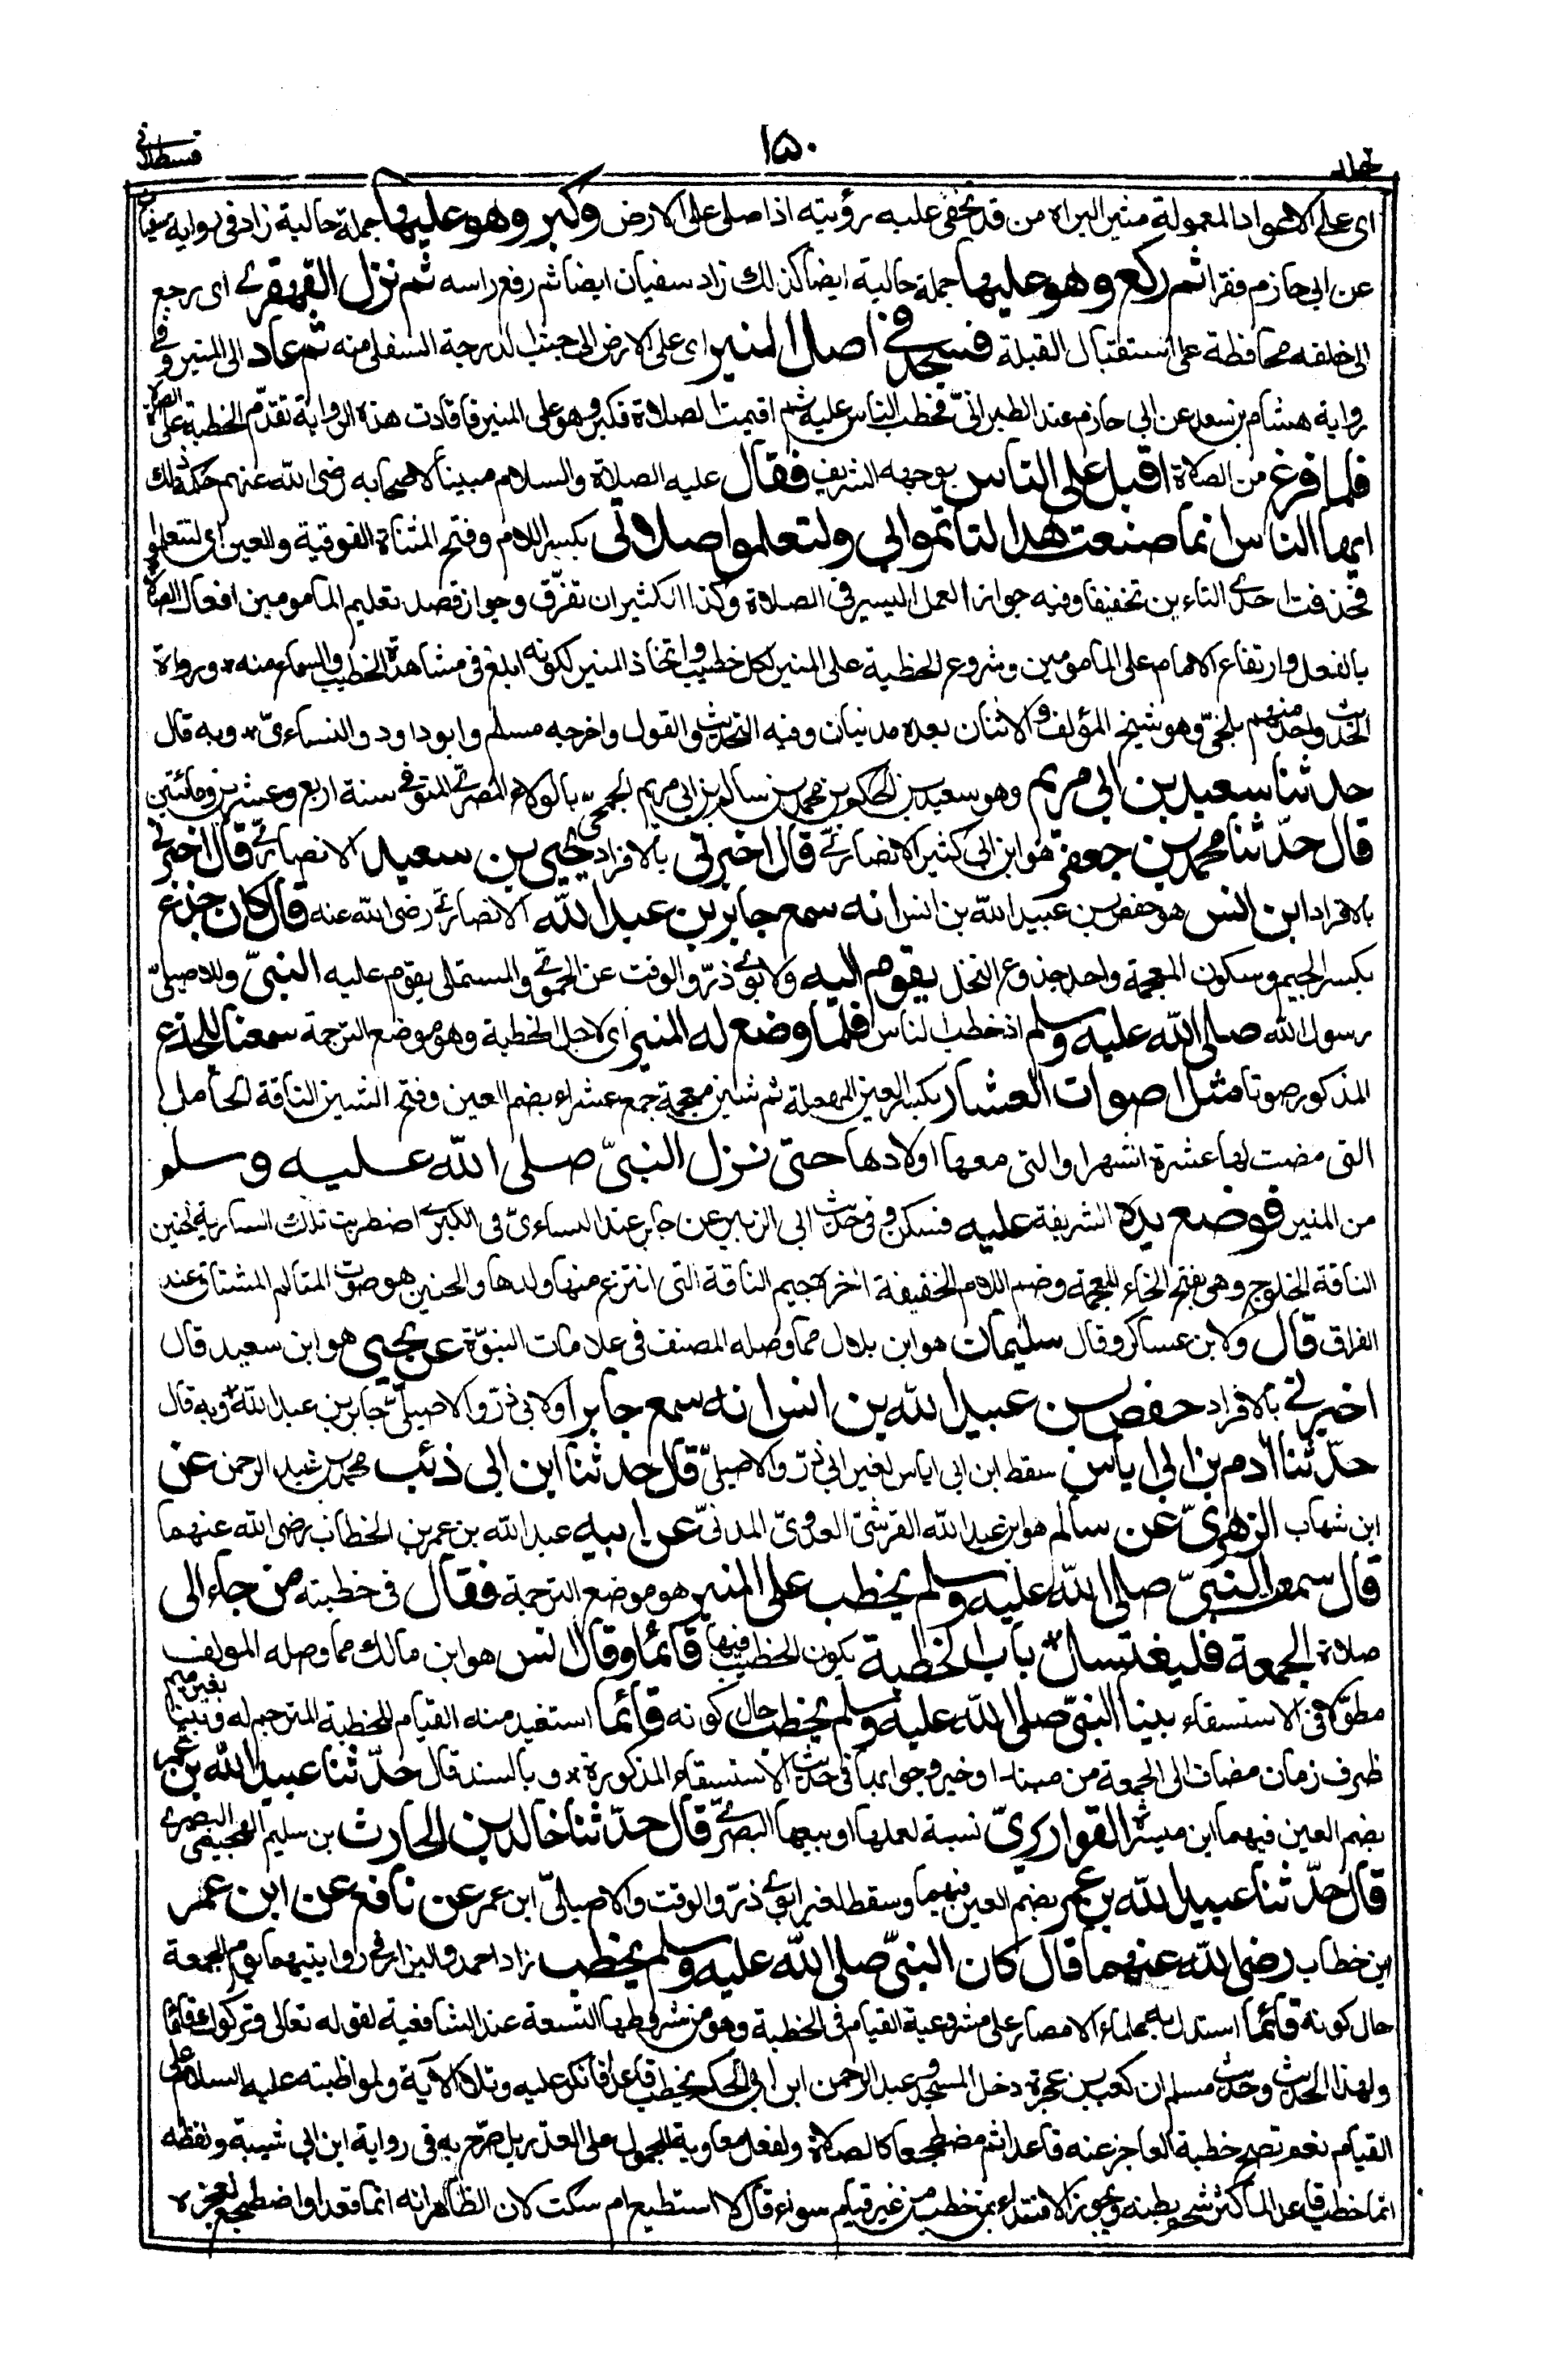 قسطلانی
١٥٠
جلد
اى على الاعواد المعمولة منبرا ليراه من قد تخفى عليه رؤيته اذا صلى على الارض وكبر وهو عليها جملة حالية زاد فى رواية سفيان
عن ابى حازم فقرا ثم ركع وهو عليها جملة حالية ايضا كذلك زاد سفيان ايضا ثم رفع راسه ثم نزل القهقرى اى رجع
الى خلفه محافظة على استقبال القبلة فسجد فى اصل المنبر اى على الارض الى جنب الدرجة السفلى منه ثم عاد الى المنبر وفى
رواية هشام بن سعد عن ابى حازم عند الطبرانىّ فخطب الناس عليه ثم اقيمت الصلاة فكبر وهو على المنبر فافادت هذه الرواية تقدّم الخطبة على الصلاة
فلما فرغ من الصلاة اقبل على الناس بوجهه الشريف فقال عليه الصلاة والسلام مبينا لاصحابه رضى الله عنهم حكمة ذلك
ايها الناس انما صنعت هذا لتأتموا بى ولتعلموا صلاتى بكسر اللام وفتح المثناة الفوقية والعين اى لتتعلموا
فحذفت احدى التاءين تخفيفا وفيه جواز العمل اليسير فى الصلاة وكذا الكثير ان تفرّق وجواز قصد تعليم المامومين افعال الصلاة
بالفعل وارتفاع الامام على المامومين وشروع الخطبة على المنبر لكل خطيب واتخاذ المنبر لكونه ابلغ فى مشاهدة الخطيب والسماع منه * ورواة
الحديث واحد منهم بلخىّ وهو شيخ المؤلف والاثنان بعده مدنيان وفيه التحديث والقول واخرجه مسلم وابو داود والنساءىّ * وبه قال
حدثنا سعيد بن ابى مريم وهو سعيد بن الحكم بن محمد بن سالم بن ابى مريم الجمحىّ بالولاء المصرىّ المتوفى سنة اربع وعشرين ومائتين
قال حدّثنا محمد بن جعفر هو ابن ابى كثير الانصارىّ قال اخبرنى بالافراد يحيى بن سعيد الانصارىّ قال اخبرنى
بالافراد ابن انس هو حفص بن عبيد الله بن انس انه سمع جابر بن عبد الله الانصارىّ رضى الله عنه قال كان جذع
بكسر الجيم وسكون المعجمة واحد جذوع النخل يقوم اليه ولابوى ذرّ والوقت عن الحموىّ والمستملى يقوم عليه النبىّ وللاصيلىّ
رسول الله صلى الله عليه وسلم اذ خطب الناس فلما وضع له المنبر اى لاجل الخطبة وهو موضع الترجمة سمعنا للجذع
المذكور صوتا مثل اصوات العشار بكسر العين المهملة ثم شين معجمة جمع عشراء بضم العين وفتح الشين الناقة الحامل
التى مضت لها عشرة اشهر او التى معها اولادها حتى نزل النبىّ صلى الله عليه وسلم
من المنبر فوضع يده الشريفة عليه فسكن وفى حديث ابى الزبير عن جابر عند النساءىّ فى الكبرى اضطربت تلك السارية كحنين
الناقة الخلوج وهى بفتح الخاء المعجمة وضم اللام الخفيفة اخره جيم الناقة التى انتزع منها ولدها والحنين هو صوت المتالم المشتاق عند
الفراق قال ولابن عساكر وقال سليمان هو ابن بلال مما وصله المصنف فى علامات النبوّة عن يحيى هو ابن سعيد قال
اخبرنى بالافراد حفص بن عبيد الله بن انس انه سمع جابرا ولابى ذرّ والاصيلىّ جابر بن عبد الله * وبه قال
حدّثنا ادم بن ابى اياس سقط ابن ابى اياس لغير ابى ذرّ والاصيلىّ قال حدثنا ابن ابى ذئب محمد بن عبد الرحمن عن
ابن شهاب الزهرىّ عن سالم هو ابن عبد الله القرشىّ العدوىّ المدنىّ عن ابيه عبد الله بن عمر بن الخطاب رضى الله عنهما
قال سمعت النبىّ صلى الله عليه وسلم يخطب على المنبر هو موضع الترجمة فقال فى خطبته من جاء الى
صلاة الجمعة فليغتسل * باب الخطبة يكون الخطيب فيها قائما وقال انس هو ابن مالك مما وصله المؤلف
مطوّلا فى الاستسقاء بينا النبىّ صلى الله عليه وسلم يخطب حال كونه قائما استفيد منه القيام للخطبة المترجم له وبينا بغير ميم
ظرف زمان مضاف الى الجمعة من مبتدا وخبر وجوابها فى حديث الاستسقاء المذكورة * وبالسند قال حدّثنا عبيد الله بن عمر
بضم العين فيهما ابن ميسرة القواريرىّ نسبة لعملها او بيعها البصرىّ قال حدّثنا خالد بن الحارث بن سليم الهجيمى البصرى
قال حدّثنا عبيد الله بن عمر بضم العين فيهما وسقط لغير ابوى ذرّ والوقت والاصيلىّ ابن عمر عن نافع عن ابن عمر
ابن خطاب رضى الله عنهما قال كان النبىّ صلى الله عليه وسلم يخطب زاد احمد والبزار فى روايتيهما يوم الجمعة
حال كونه قائما استدل به علماء الامصار على مشروعية القيام فى الخطبة وهو من شروطها التسعة عند الشافعية لقوله تعالى وتركوك قائما
ولهذا الحديث وحديث مسلم ان كعب بن عجرة دخل المسجد وعبد الرحمن ابن ابى الحكم يخطب قاعدا فانكر عليه وتلا الآية ولمواظبته عليه السلام على
القيام نعم تصح خطبة العاجز عنه قاعدا ثم مضطجعا كالصلاة ولفعل معاوية المحمول على العذر بل صرّح به فى رواية ابن ابى شيبة ولفظه
انما خطب قاعدا لما كثر شحم بطنه ويجوز الاقتداء بمن خطب من غير قيام سواء قال لا استطيع ام سكت لان الظاهر انه انما قعد او اضطجع لعجزه